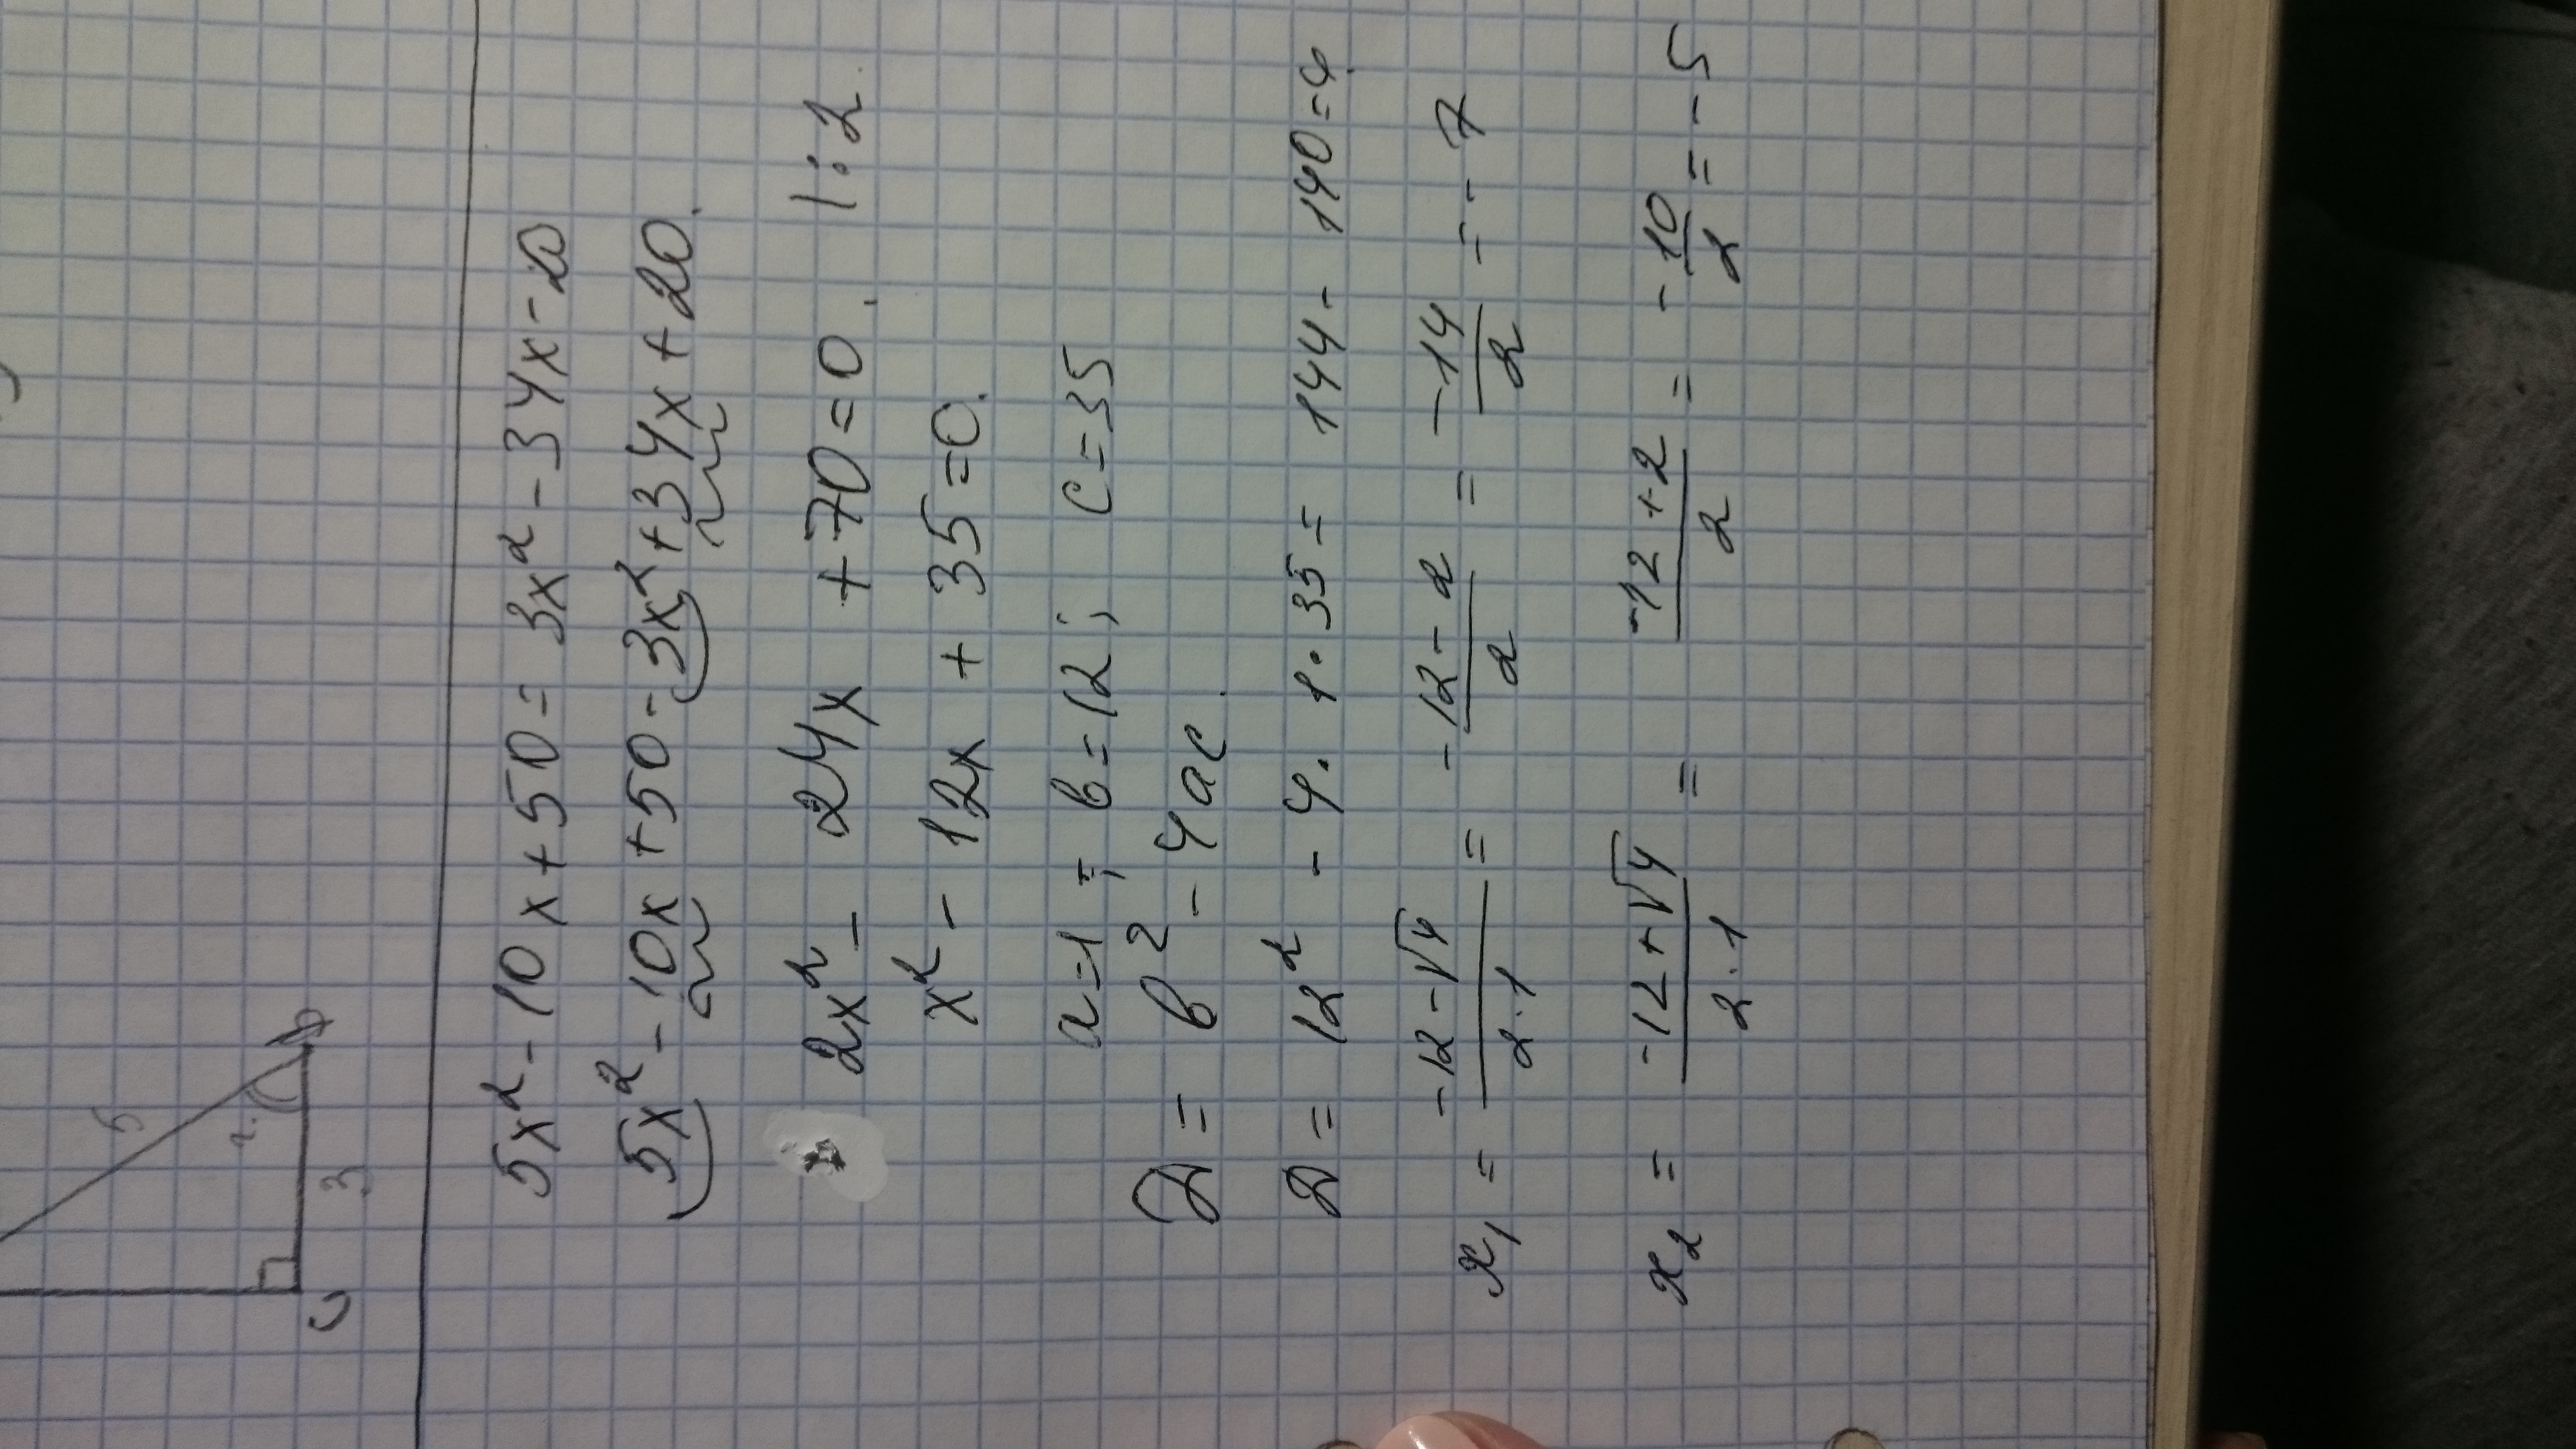 5
2
3
C
5x² - 10x + 50 = 3x² - 34x - 20
5x² - 10x + 50 - 3x² + 34x + 20.
2x² - 24x + 70 = 0. | : 2
x² - 12x + 35 = 0.
a = 1; b = 12; c = 35
D = b² - 4ac.
D = 12² - 4 · 1 · 35 = 144 - 140 = 4.
x₁ = (-12 - √4)/(2·1) = (-12 - 2)/2 = -14/2 = -7
x₂ = (-12 + √4)/(2·1) = (-12 + 2)/2 = -10/2 = -5